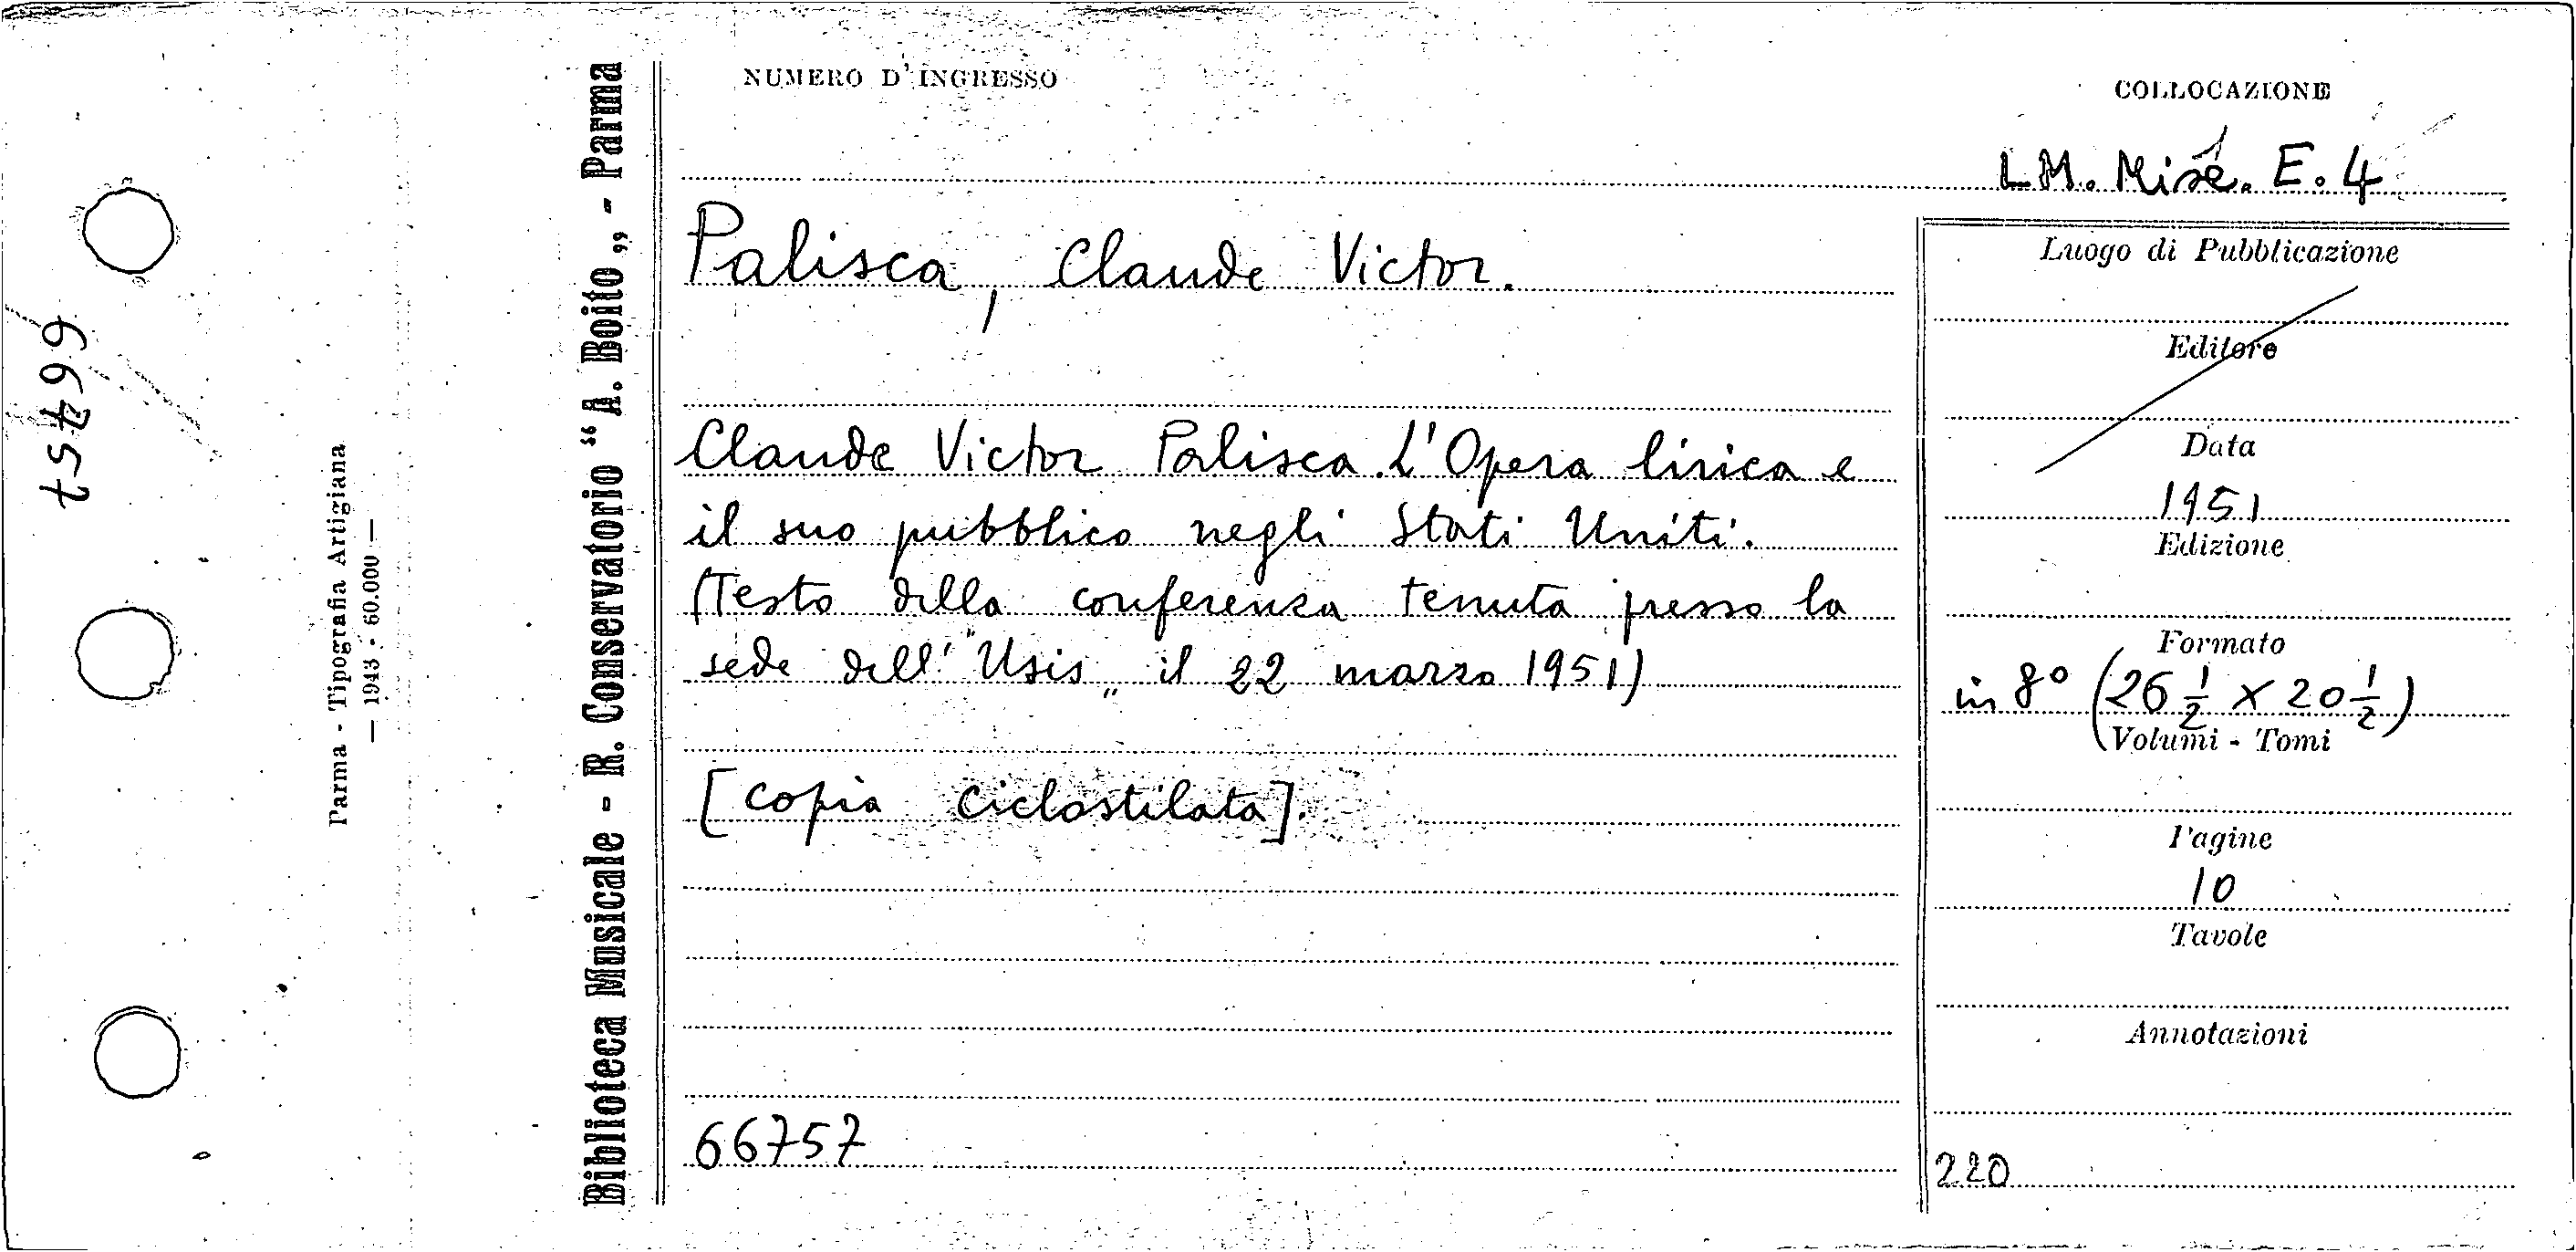 66757
Parma - Tipografia Artigiana
— 1943 - 60.000 —
Biblioteca Musicale - R. Conservatorio “A. Boito„ - Parma
NUMERO D'INGRESSO
COLLOCAZIONE
LM. Misc. E. 4
Palisca, Claude Victor.
Claude Victor Palisca. L'Opera lirica e
il suo pubblico negli Stati Uniti.
(Testo della conferenza tenuta presso la
sede dell' "Usis„ il 22 marzo 1951)
[copia ciclostilata].
66757
Luogo di Pubblicazione
Editore
Data
1951
Edizione
Formato
in 8° (26 1/2 x 20 1/2)
Volumi - Tomi
Pagine
10
Tavole
Annotazioni
220